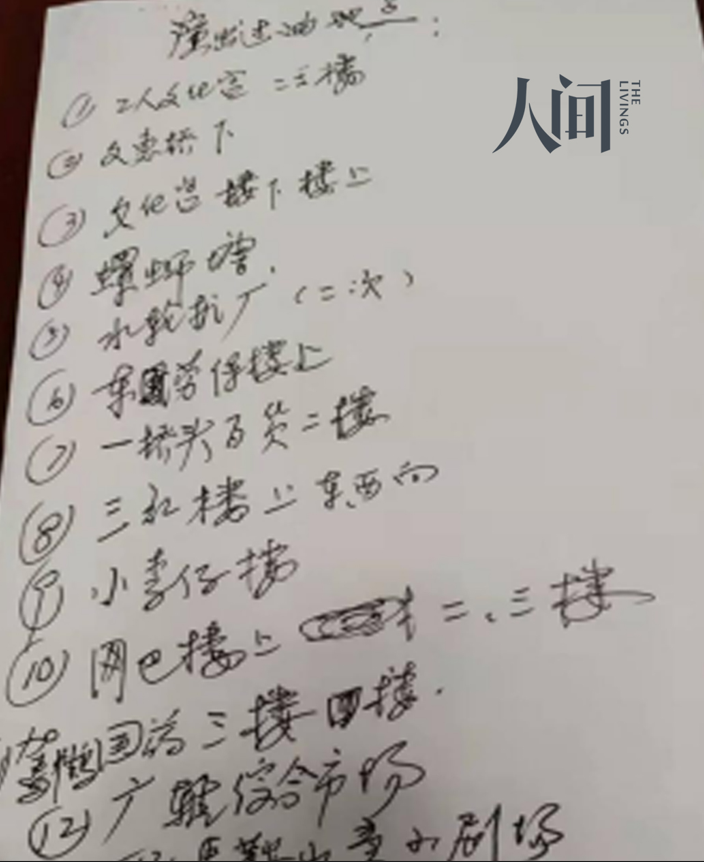 演出过的地点:
人间
THE LIVINGS
① 工人文化宫 二三楼
② 文惠桥下
③ 文化宫楼下楼上
④ 螺蛳塔.
⑤ 水轮机厂(二次)
⑥ 东国劳保楼上
⑦ 一桥头百货二楼
⑧ 三和楼上东西向
⑨ 小李仔楼
⑩ 网巴楼上 二、三楼
三楼四楼.
⑫ 广雅综合市场
剧场